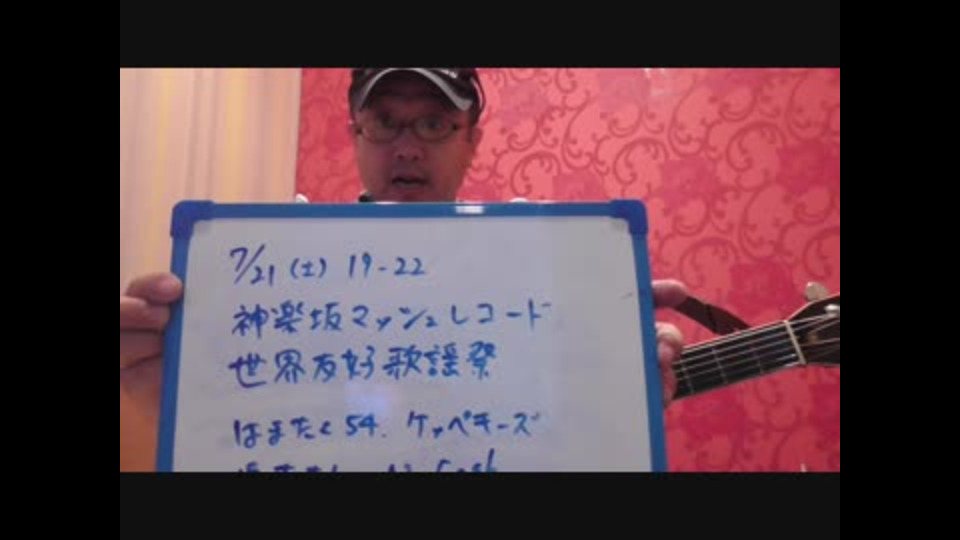 7/21 (土) 19-22
神楽坂マッシュレコード
世界友好歌謡祭
はまたく54. ケッペキーズ